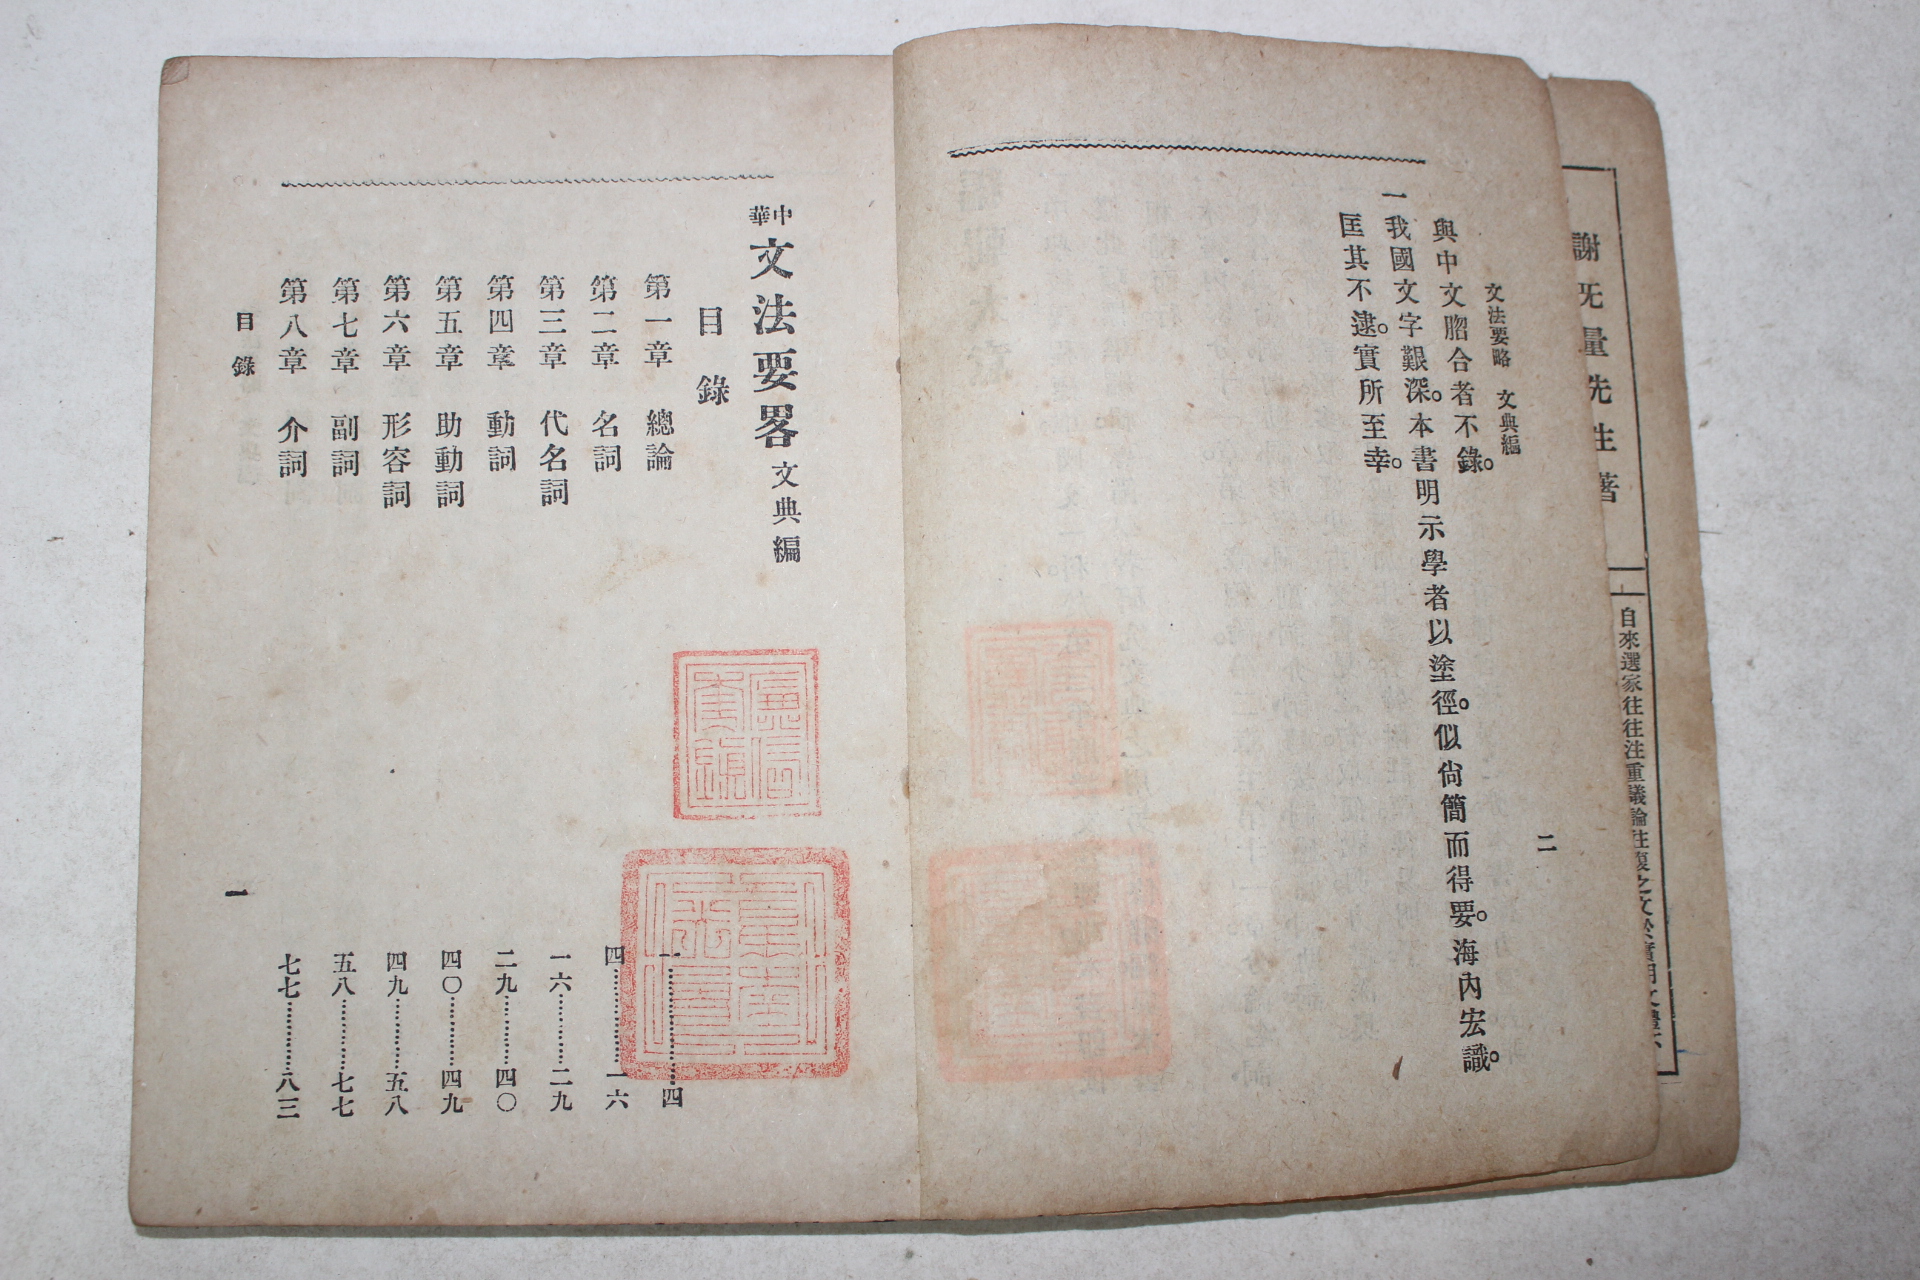 謝无量先生著
自來選家往往注重議論
文法要略　文典編
二
與中文脗合者不錄。
一我國文字艱深。本書明示學者以塗徑。似尙簡而得要。海內宏識。
匡其不逮。實所至幸。
中華文法要畧文典編
目錄
第一章　總論　一……………四
第二章　名詞　四……………一六
第三章　代名詞　一六……………二九
第四章　動詞　二九……………四〇
第五章　助動詞　四〇……………四九
第六章　形容詞　四九……………五八
第七章　副詞　五八……………七七
第八章　介詞　七七……………八三
目錄
一